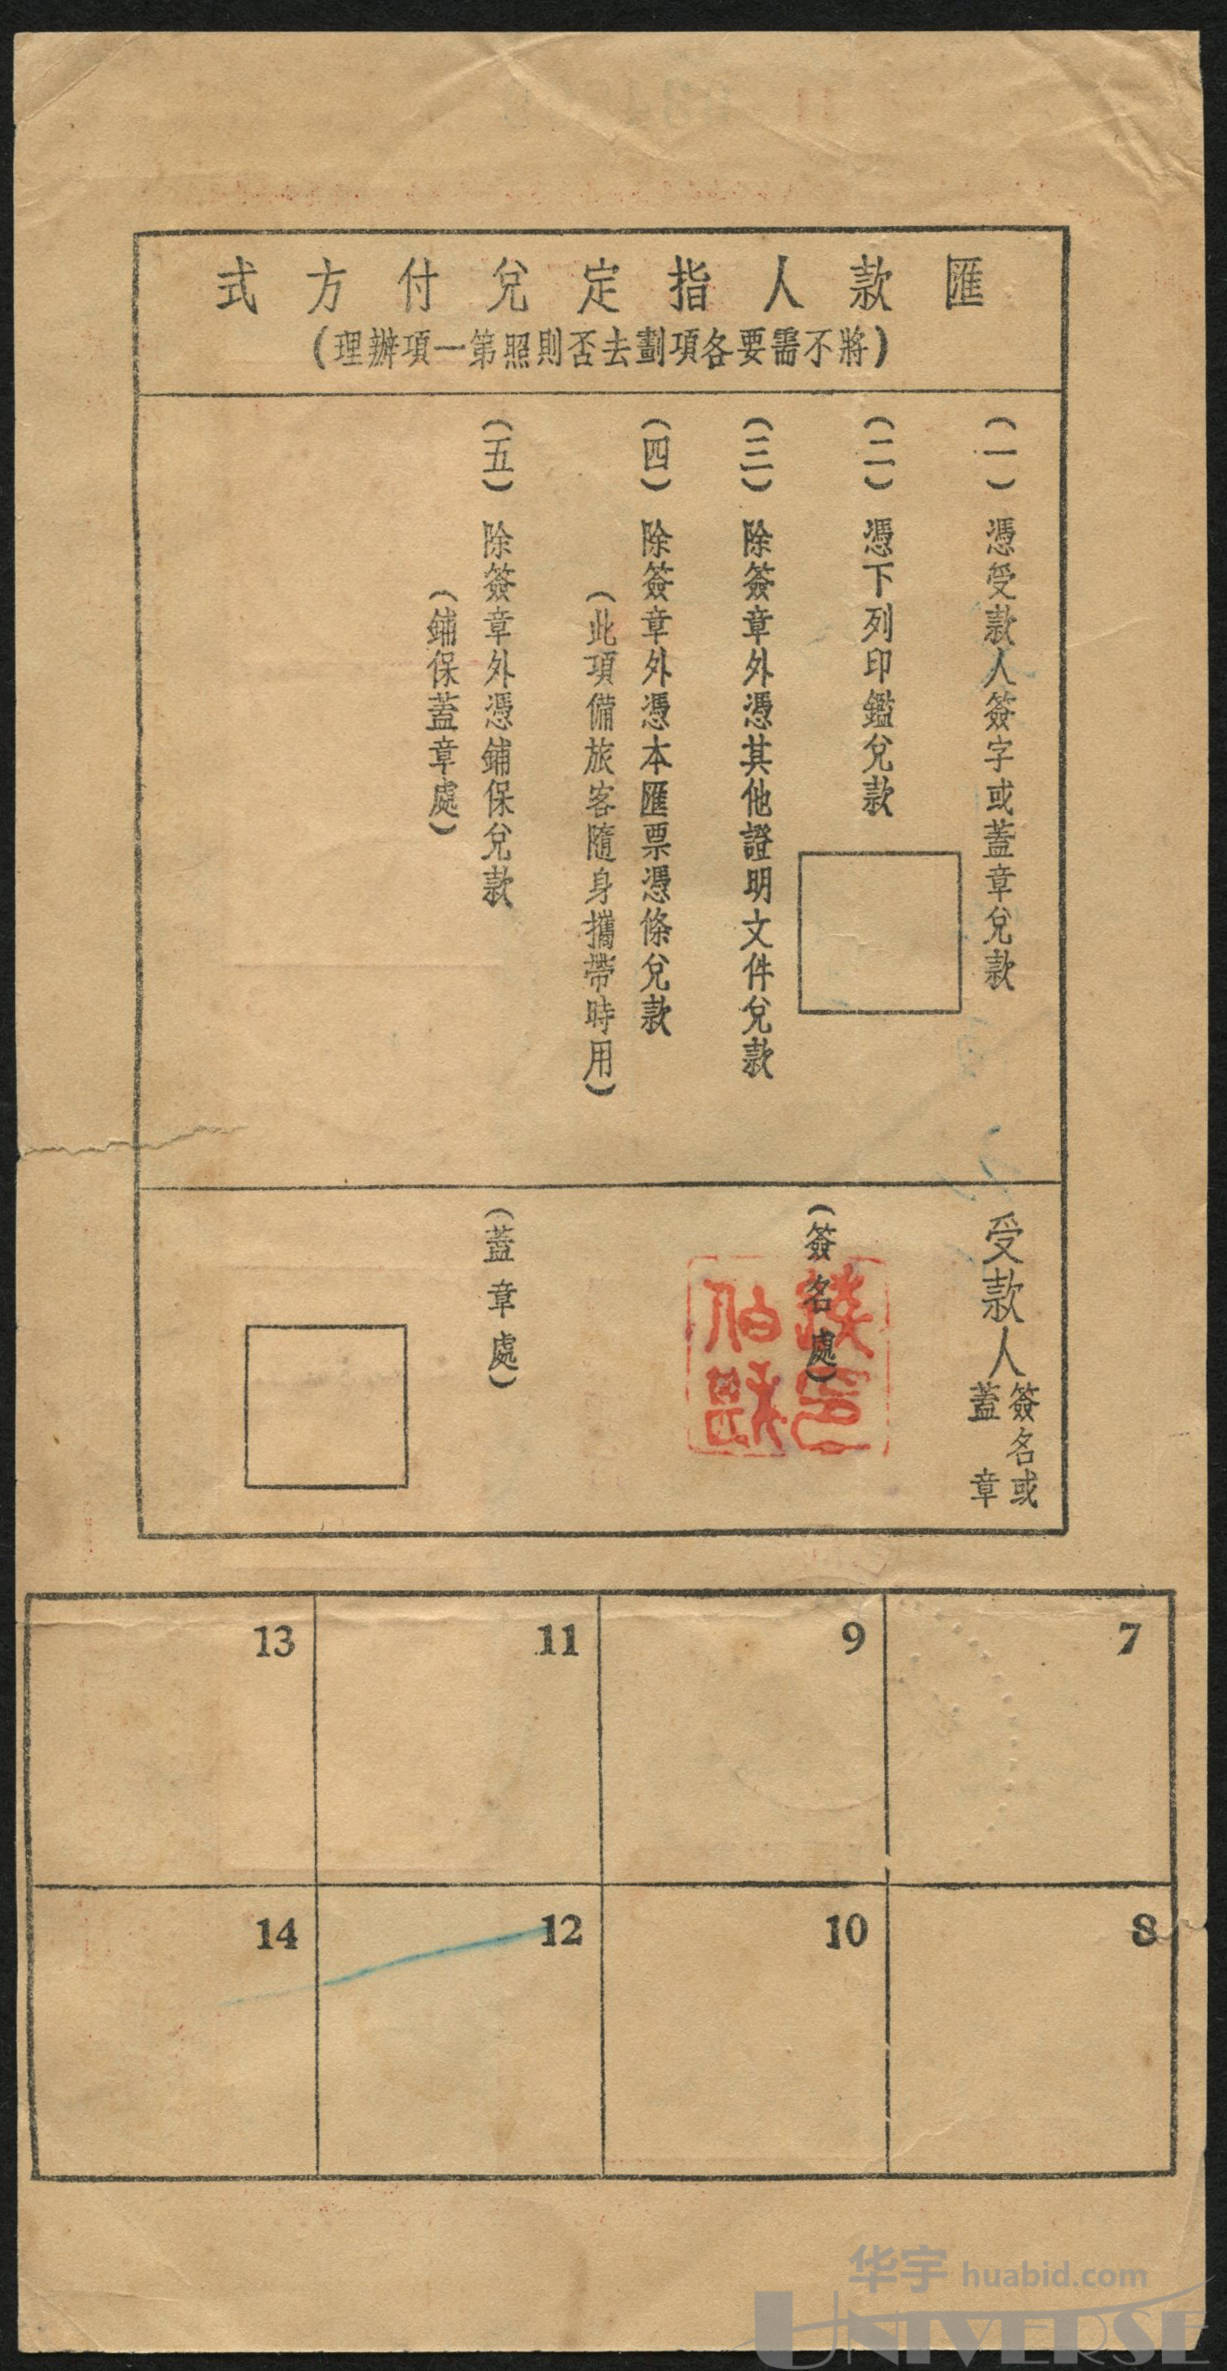 匯款人指定兌付方式
(將不需要各項劃去否則照第一項辦理)
(一)憑受款人簽字或蓋章兌款
(二)憑下列印鑑兌款
(三)除簽章外憑其他證明文件兌款
(四)除簽章外憑本匯票憑條兌款
(此項備旅客隨身攜帶時用)
(五)除簽章外憑鋪保兌款
(鋪保蓋章處)
受款人簽名或蓋章
(簽名處)
(蓋章處)
7
9
11
13
8
10
12
14
华宇 huabid.com
UNIVERSE